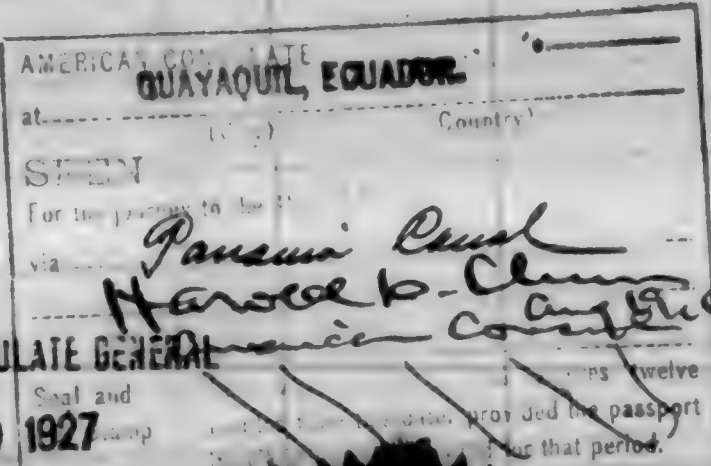 AMERICAN CONSULATE
GUAYAQUIL, ECUADOR.
at
Country)
SEEN
For the journey to the
via Panama Canal
Harold D. Clum
American Consul
ULATE GENERAL
Seal and
1927
twelve
provided the passport
for that period.